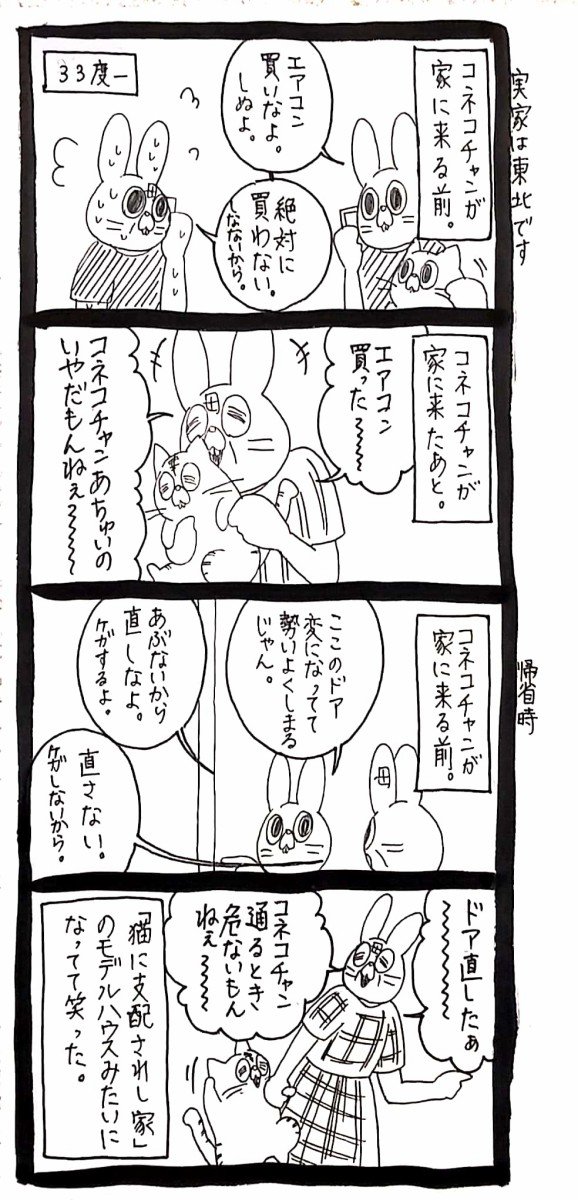 実家は東北です
コネコチャンが
家に来る前。
エアコン
買いなよ。
しぬよ。
33度ー
絶対に
買わない。
しなないから。
コネコチャンが
家に来たあと。
エアコン
買った〜〜〜
コネコチャンあちゅいの
いやだもんねぇ〜〜〜
帰省時
コネコチャンが
家に来る前。
ここのドア
変になってて
勢いよくしまる
じゃん。
あぶないから
直しなよ。
ケガするよ。
母
直さない。
ケガしないから。
ドア直したぁ
〜〜〜〜
コネコチャン
通るとき
危ないもん
ねぇ〜〜〜
「猫に支配されし家」
のモデルハウスみたいに
なってて笑った。